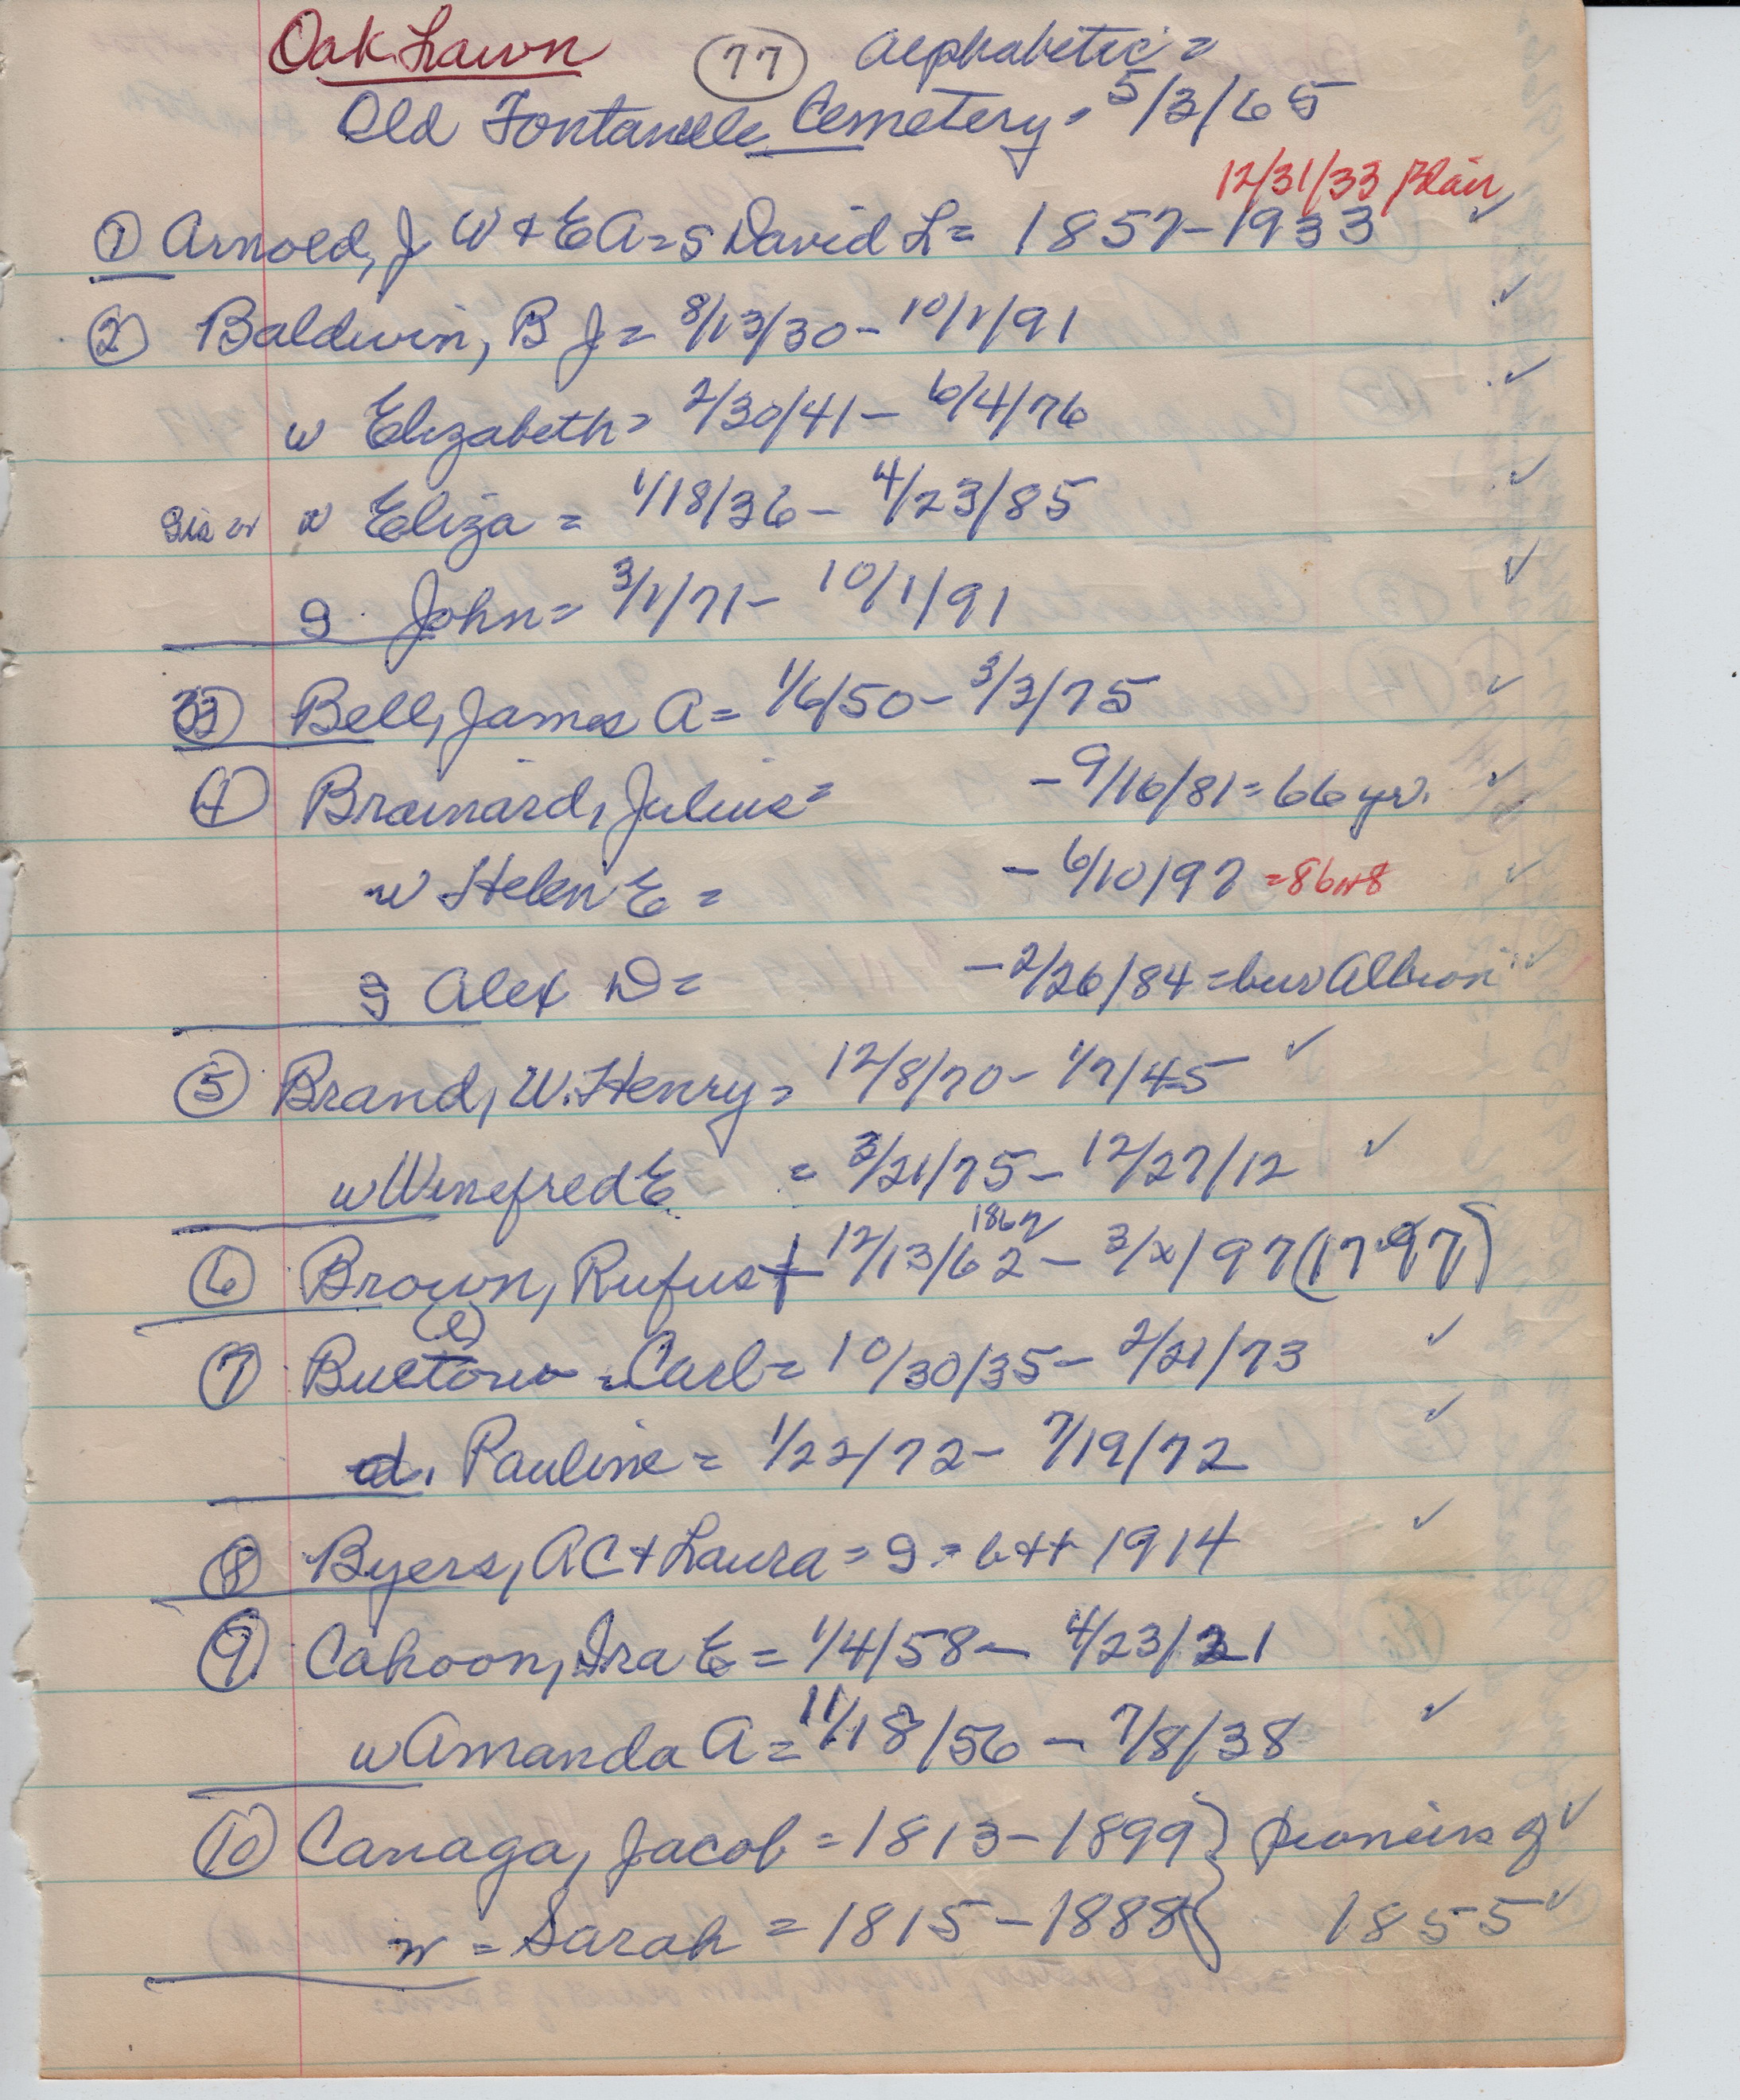 Oak Lawn 77 Alphabetic =
Old Fontanelle Cemetery = 5/3/65
12/31/33 Blair
① Arnold, J W + E A = S David L = 1857 - 1933 ✓
② Baldwin, B J = 8/13/30 - 10/1/91 ✓
w Elizabeth = 2/30/41 - 6/4/76 ✓
Sis or w Eliza = 1/18/36 - 4/23/85 ✓
S John = 3/1/71 - 10/1/91 ✓
③ Bell, James A = 1/6/50 - 3/3/75 ✓
④ Brainard, Julius = - 9/16/81 = 66 yr. ✓
w Helen E = - 6/10/97 = 86 or 8 ✓
S Alex D = - 2/26/84 = bur Albion ✓
⑤ Brand, W. Henry = 12/8/70 - 1/7/45 ✓
w Winefred E = 3/21/75 - 12/27/12 ✓
1862
⑥ Brown, Rufus + 12/13/62 - 3/x/97 (17 97)
(e)
⑦ Buetow = Carl = 10/30/35 - 2/21/73 ✓
d. Pauline = 1/22/72 - 7/19/72 ✓
⑧ Byers, A C + Laura = S = b + + 1914 ✓
⑨ Cahoon, Ira E = 1/4/58 - 4/23/21
w Amanda A = 11/18/56 - 7/8/38 ✓
⑩ Canaga, Jacob = 1813 - 1899 } pioneers of ✓
w = Sarah = 1815 - 1888 } 1855 ✓